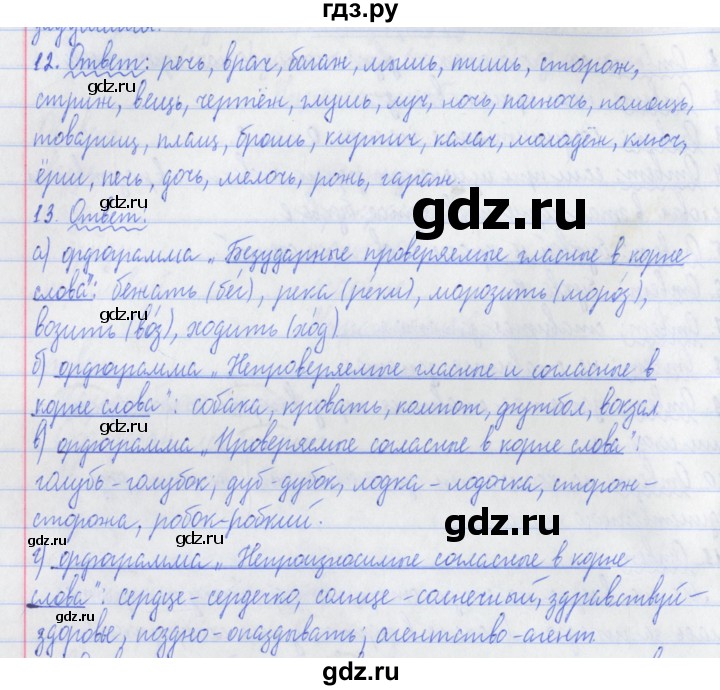 гдз.ру
задушить.
12. Ответ: речь, врач, багаж, мышь, тишь, сторож,
gdz.ru
стриж, вещь, чертёж, глушь, луч, ночь, полночь, помощь,
товарищ, плащ, брошь, кирпич, калач, молодёж, ключ,
gdz.ru
ёрш, печь, дочь, мелочь, рожь, гараж.
gdz.ru
13. Ответ:
а) орфограмма „Безударные проверяемые гласные в корне
gdz.ru
слова": бежать (бег), река (реки), морозить (моро́з),
gdz.ru
возить (во́з), ходить (хо́д)
б) орфограмма „Непроверяемые гласные и согласные в
gdz.ru
корне слова": собака, кровать, компот, футбол, вокзал
gdz.ru
в) орфограмма „Проверяемые согласные в корне слова":
голубь - голубок, дуб - дубок, лодка - лодочка, сторож-
gdz.ru
сторожа, робок-робкий.
gdz.ru
г) орфограмма „Непроизносимые согласные в корне
слова": сердце - сердечко, солнце - солнечный, здравствуй-
gdz.ru
здоровье, поздно - опаздывать, агентство - агент
gdz.ru